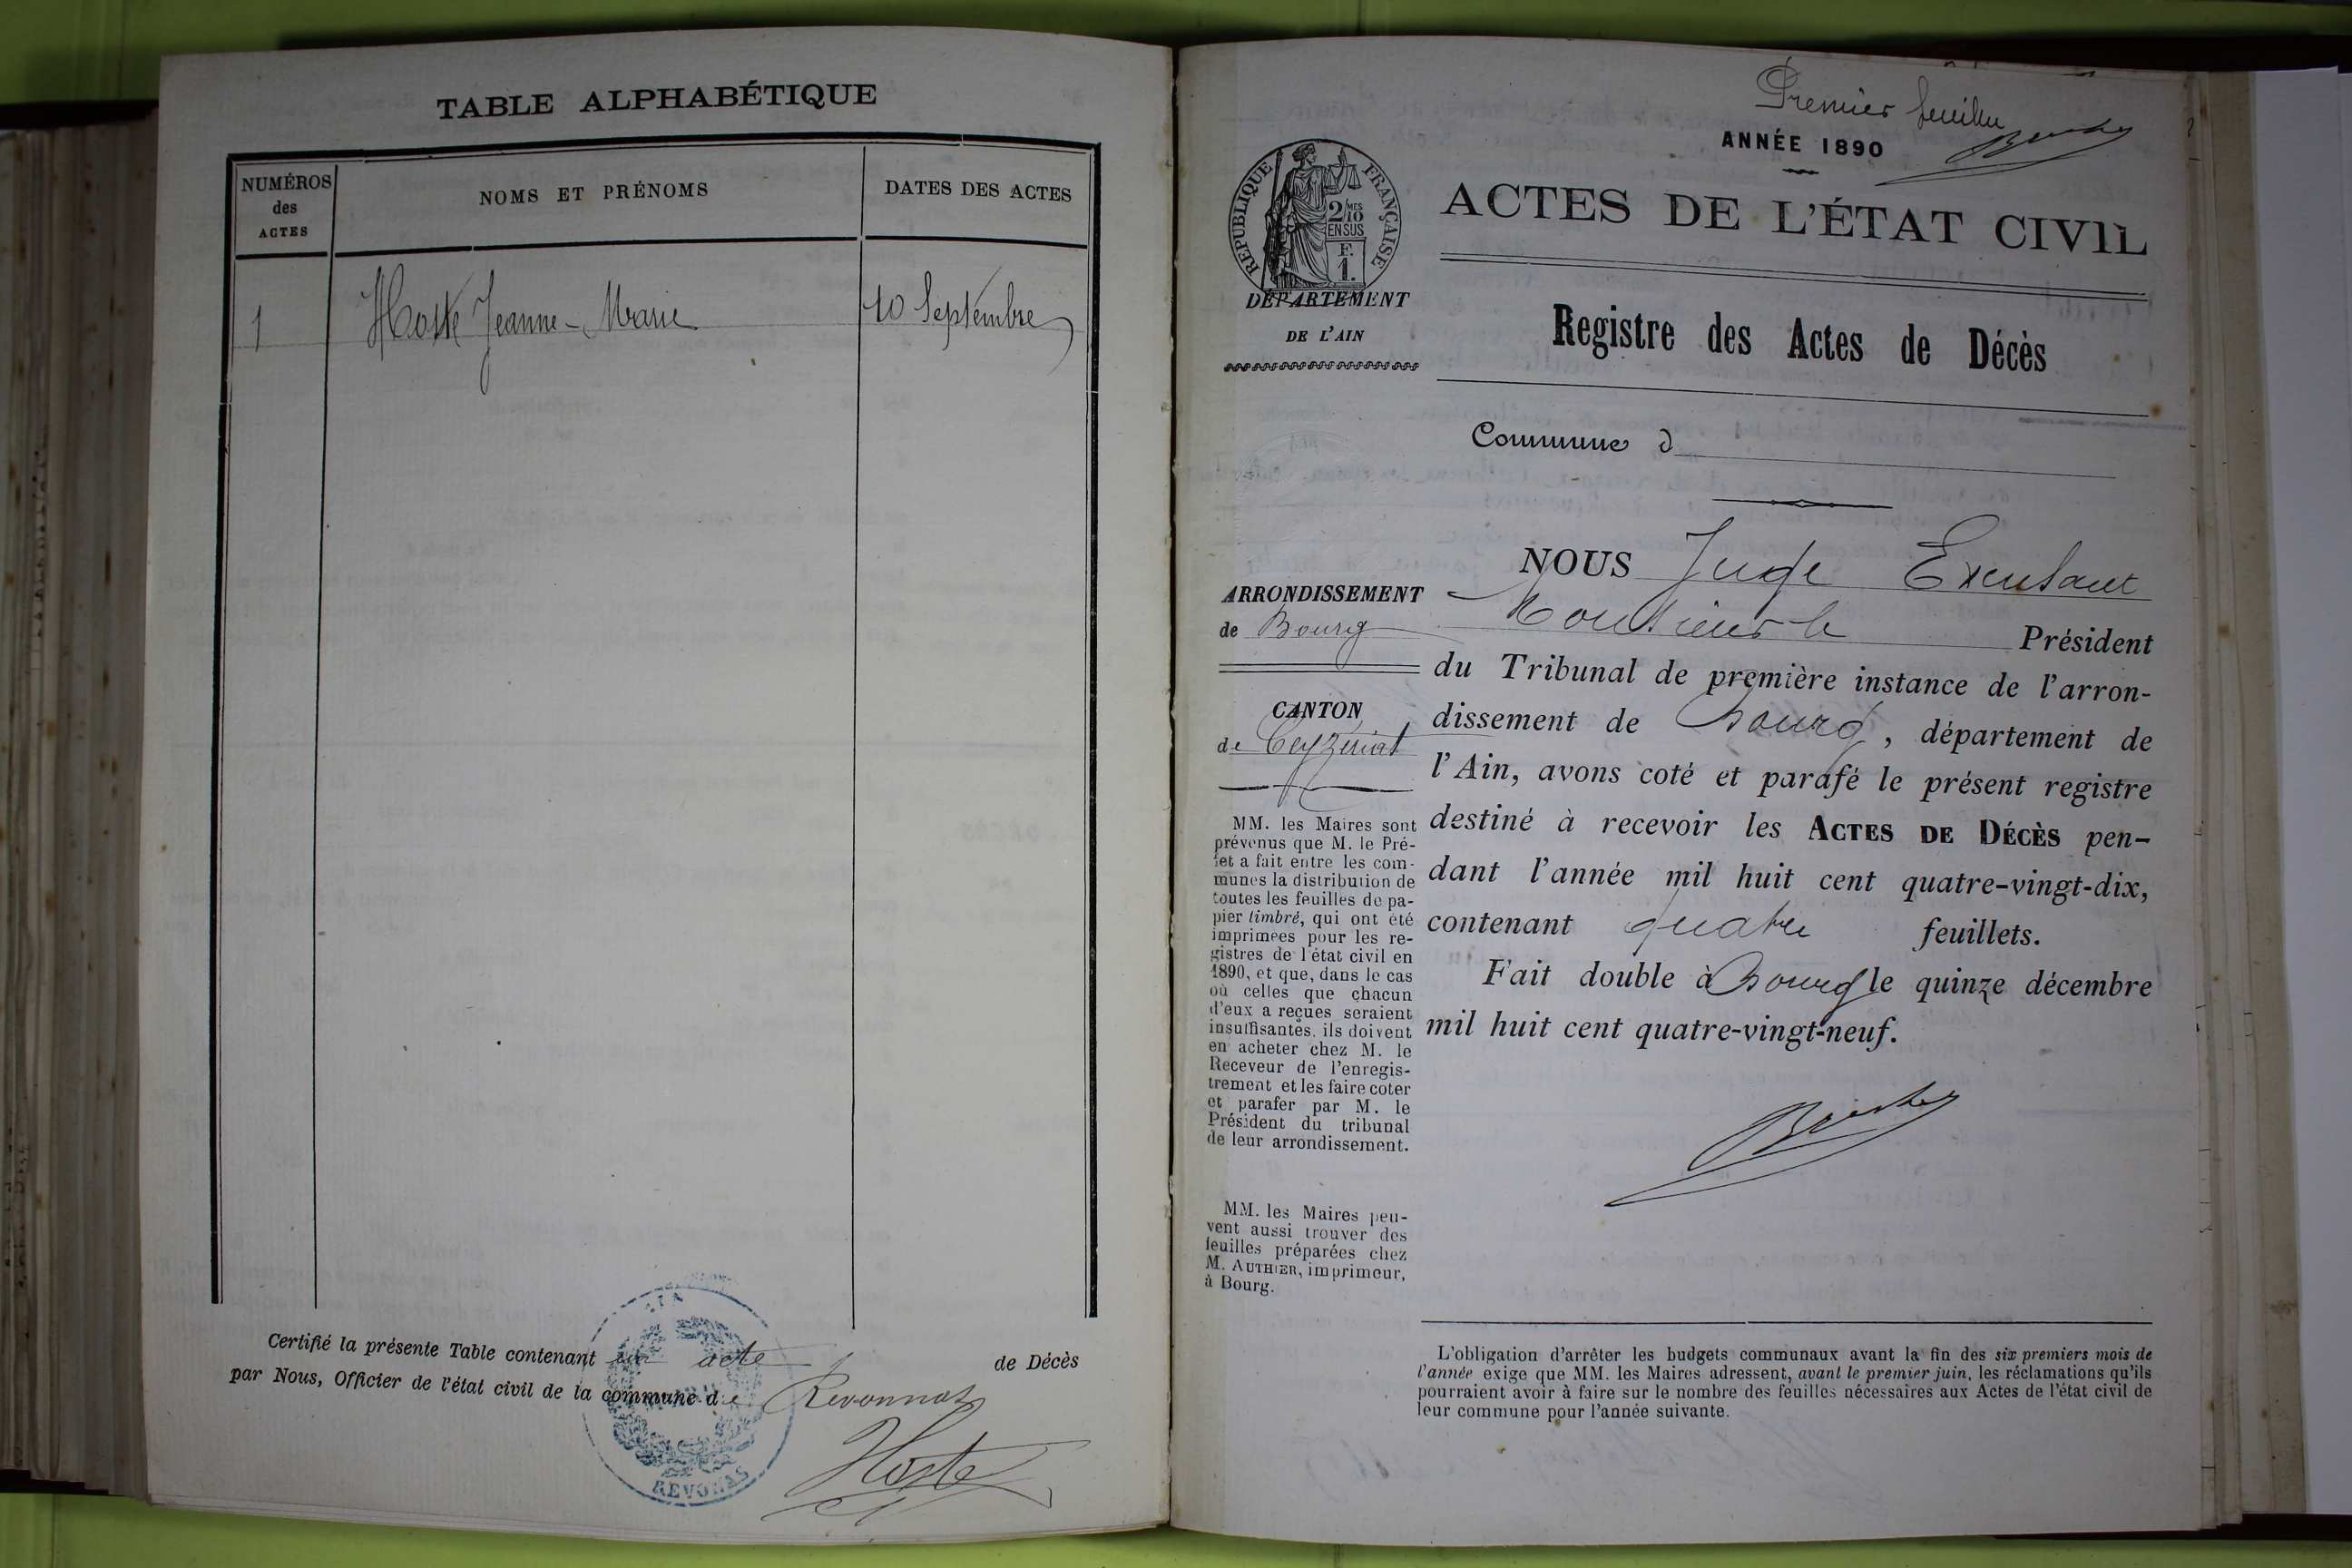 TABLE ALPHABÉTIQUE
NUMÉROS
des
ACTES
NOMS ET PRÉNOMS
DATES DES ACTES
1 Hoste Jeanne-Marie 10 Septembre
Certifié la présente Table contenant un acte de Décès
par Nous, Officier de l'état civil de la commune de Revonnas
REVONAS
Hoste
Premier feuillet
ANNÉE 1890
RÉPUBLIQUE FRANÇAISE
2/10 MES
EN SUS
F.
1.
ACTES DE L'ÉTAT CIVIL
DÉPARTEMENT
DE L'AIN
Registre des Actes de Décès
Commune d
ARRONDISSEMENT
de Bourg
CANTON
de Ceyzériat
MM. les Maires sont
prévenus que M. le Pré-
fet a fait entre les com-
munes la distribution de
toutes les feuilles de pa-
pier timbré, qui ont été
imprimées pour les re-
gistres de l'état civil en
1890, et que, dans le cas
où celles que chacun
d'eux a reçues seraient
insuffisantes, ils doivent
en acheter chez M. le
Receveur de l'enregis-
trement et les faire coter
et parafer par M. le
Président du tribunal
de leur arrondissement.
MM. les Maires peu-
vent aussi trouver des
feuilles préparées chez
M. AUTHIER, imprimeur,
à Bourg.
NOUS Juge
Monsieur le Président
du Tribunal de première instance de l'arron-
dissement de Bourg, département de
l'Ain, avons coté et parafé le présent registre
destiné à recevoir les ACTES DE DÉCÈS pen-
dant l'année mil huit cent quatre-vingt-dix,
contenant quatre feuillets.
Fait double à Bourg le quinze décembre
mil huit cent quatre-vingt-neuf.
L'obligation d'arrêter les budgets communaux avant la fin des six premiers mois de
l'année exige que MM. les Maires adressent, avant le premier juin, les réclamations qu'ils
pourraient avoir à faire sur le nombre des feuilles nécessaires aux Actes de l'état civil de
leur commune pour l'année suivante.